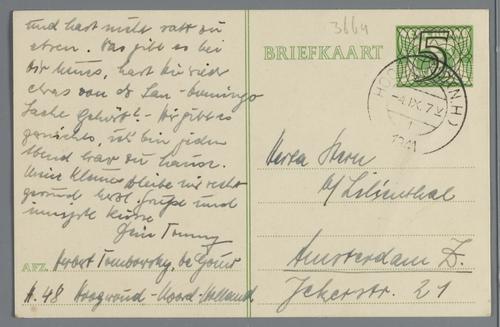 und hast nicht satt zu
essen. Was gibt es bei
dir neues, hast du wieder
etwas von der San-Domingo
Sache gehört? – Hier gibt es
garnichts, ich bin jeden
Abend brav zu Hause.
Meine Kleine bleibe mir recht
gesund herzl. Grüße und
innigste Küsse
Dein Tommy
3664
BRIEFKAART
5
(N.H.)
-4.IX.7V
1941
Herta Stern
b/ Lilienthal
Amsterdam Z.
Jekerstr. 21
AFZ. Herbert Tombowsky, de Gouw
A. 48 Hoogwoud-Noord-Holland